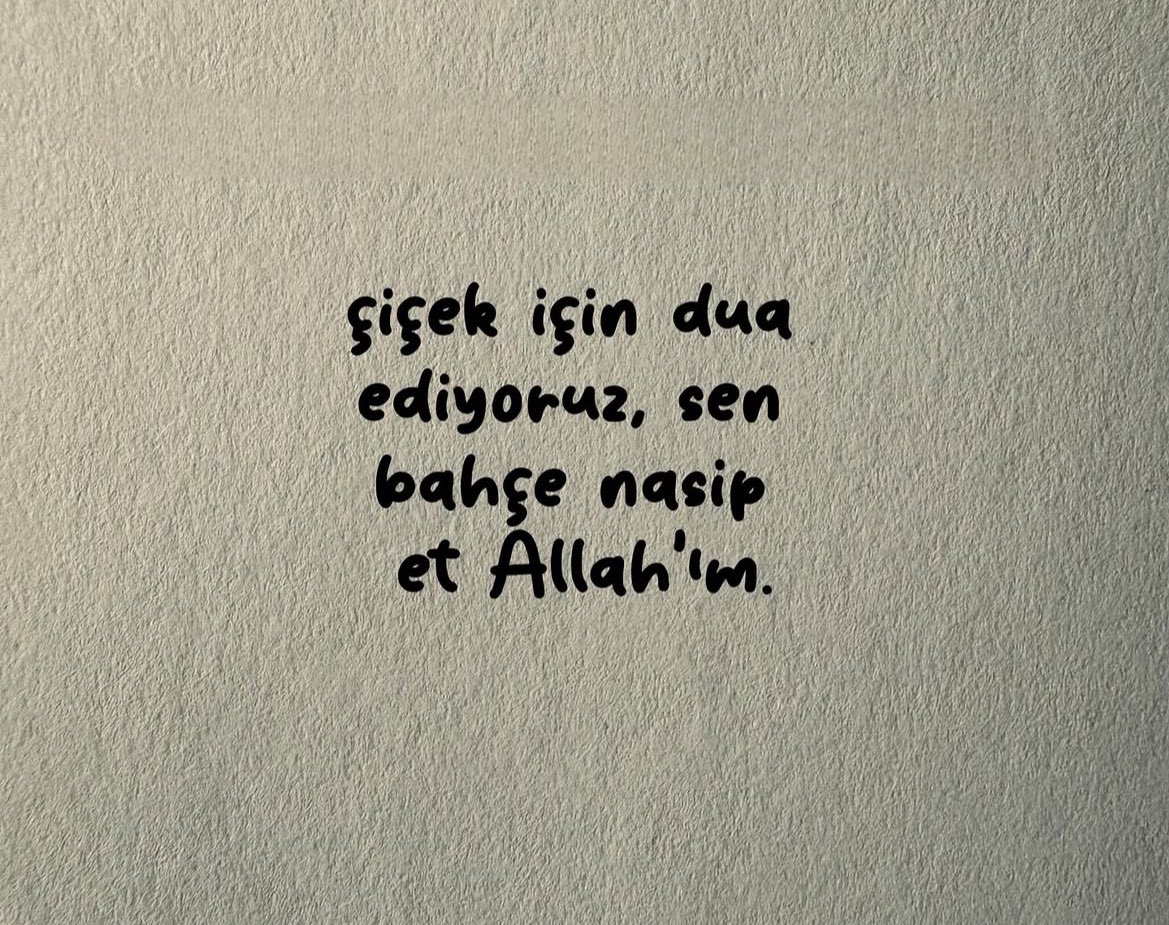 çiçek için dua
ediyoruz, sen
bahçe nasip
et Allah'ım.